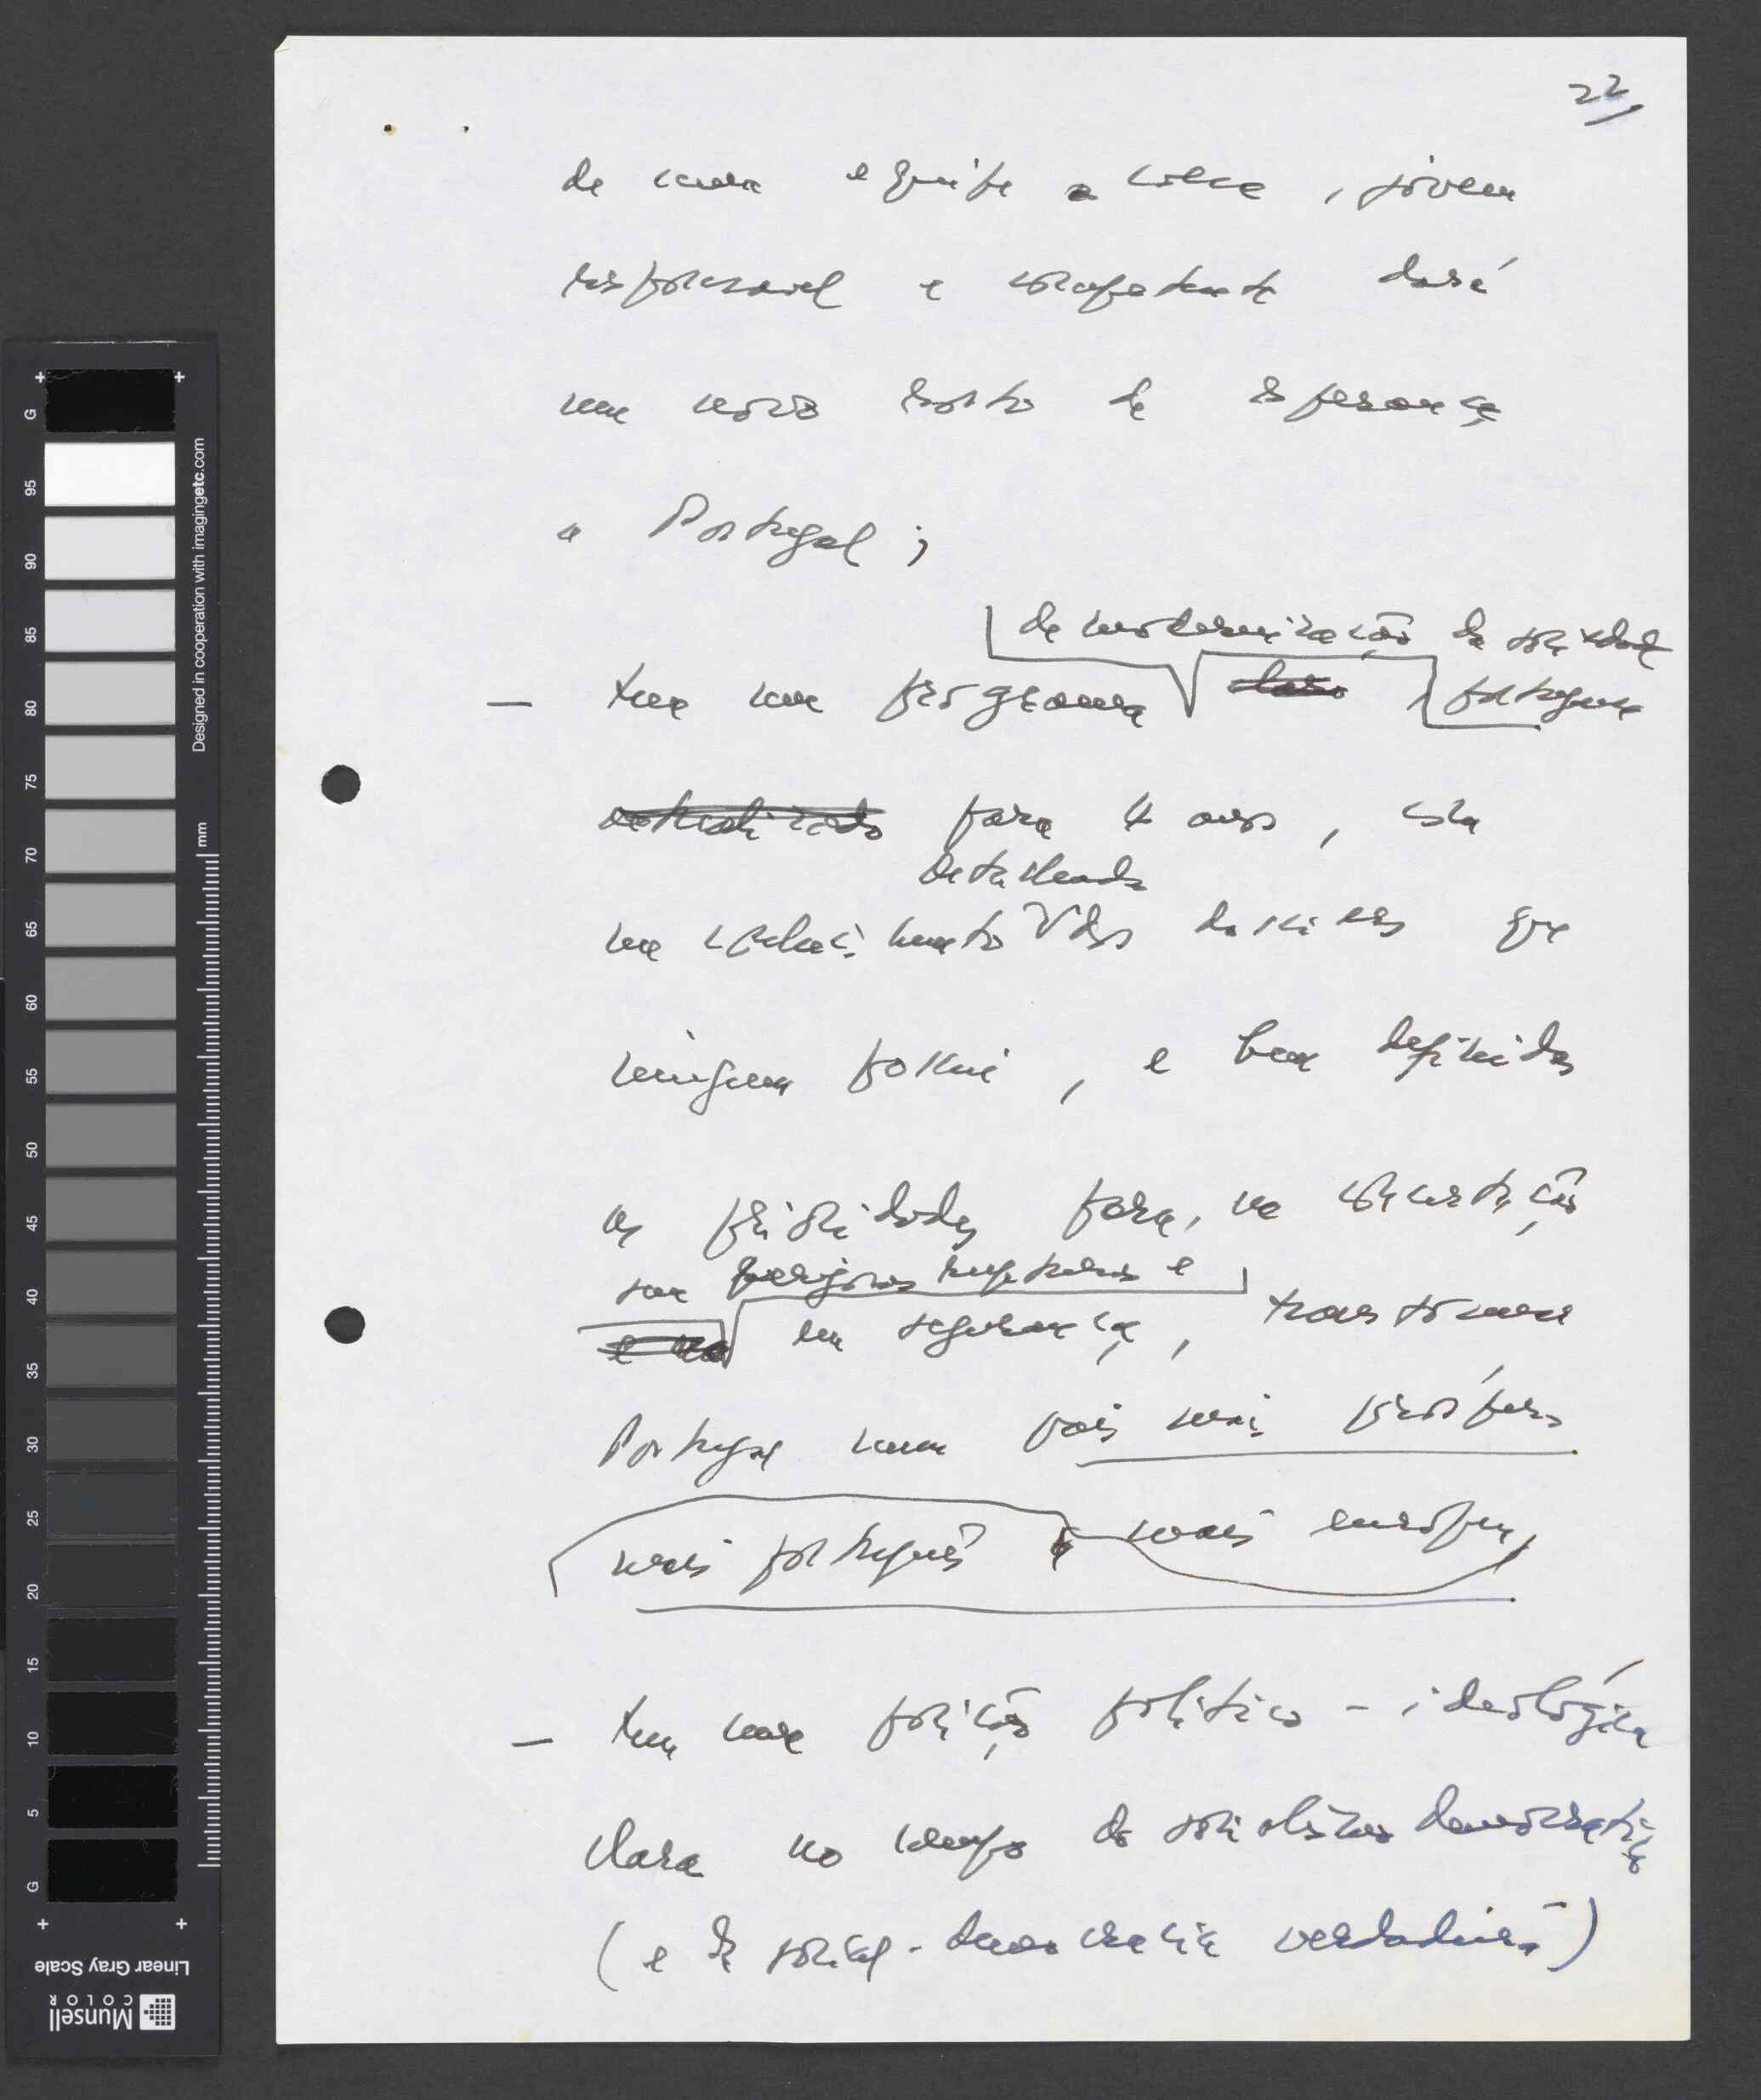 22
de uma equipe coesa, jovem
responsavel e competente dará
um novo rosto de esperança
a Portugal;
de modernização da sociedade
— tem um programa claro, portuguesa
actualizado para 4 anos, com
detalhado
um conhecimento dos dossiers que
ninguem possui, e bem definidas
as prioridades para, na concertação
sem perigosas rupturas e
e na em segurança, transformar
Portugal num pais mais próspero
mais português e mais europeu,
— tem uma posição politico-ideológica
clara no campo do socialismo democrático
(e da social-democracia verdadeira)
G
95
90
85
80
75
70
65
60
55
50
45
40
35
30
25
20
15
10
5
G
mm
Designed in cooperation with imagingetc.com
Linear Gray Scale
Munsell
COLOR